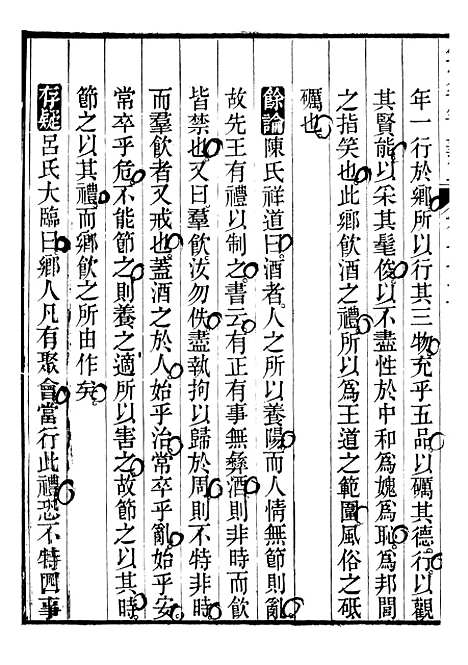 年一行於鄉所以行其三物充乎五品以礪其德行以觀
其賢能以采其髦俊以不盡性於中和爲媿爲恥爲邦閭
之指笑也此鄉飲酒之禮所以爲王道之範圍風俗之砥
礪也
餘論陳氏祥道曰酒者人之所以養陽而人情無節則亂
故先王有禮以制之書云有正有事無彝酒則非時而飲
皆禁也又曰羣飲汝勿佚盡執拘以歸於周則不特非時
而羣飲者又戒也蓋酒之於人始乎治常卒乎亂始乎安
常卒乎危不能節之則養之適所以害之故節之以其時
節之以其禮而鄉飲之所由作矣
存疑呂氏大臨曰鄉人凡有聚會當行此禮恐不特四事